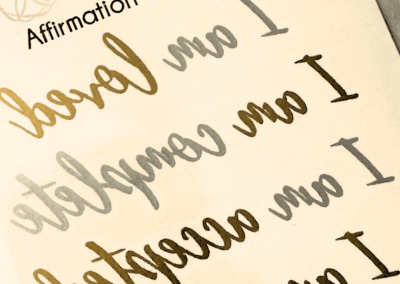 Affirmation
I am loved
I am complete
I am accepted
I am